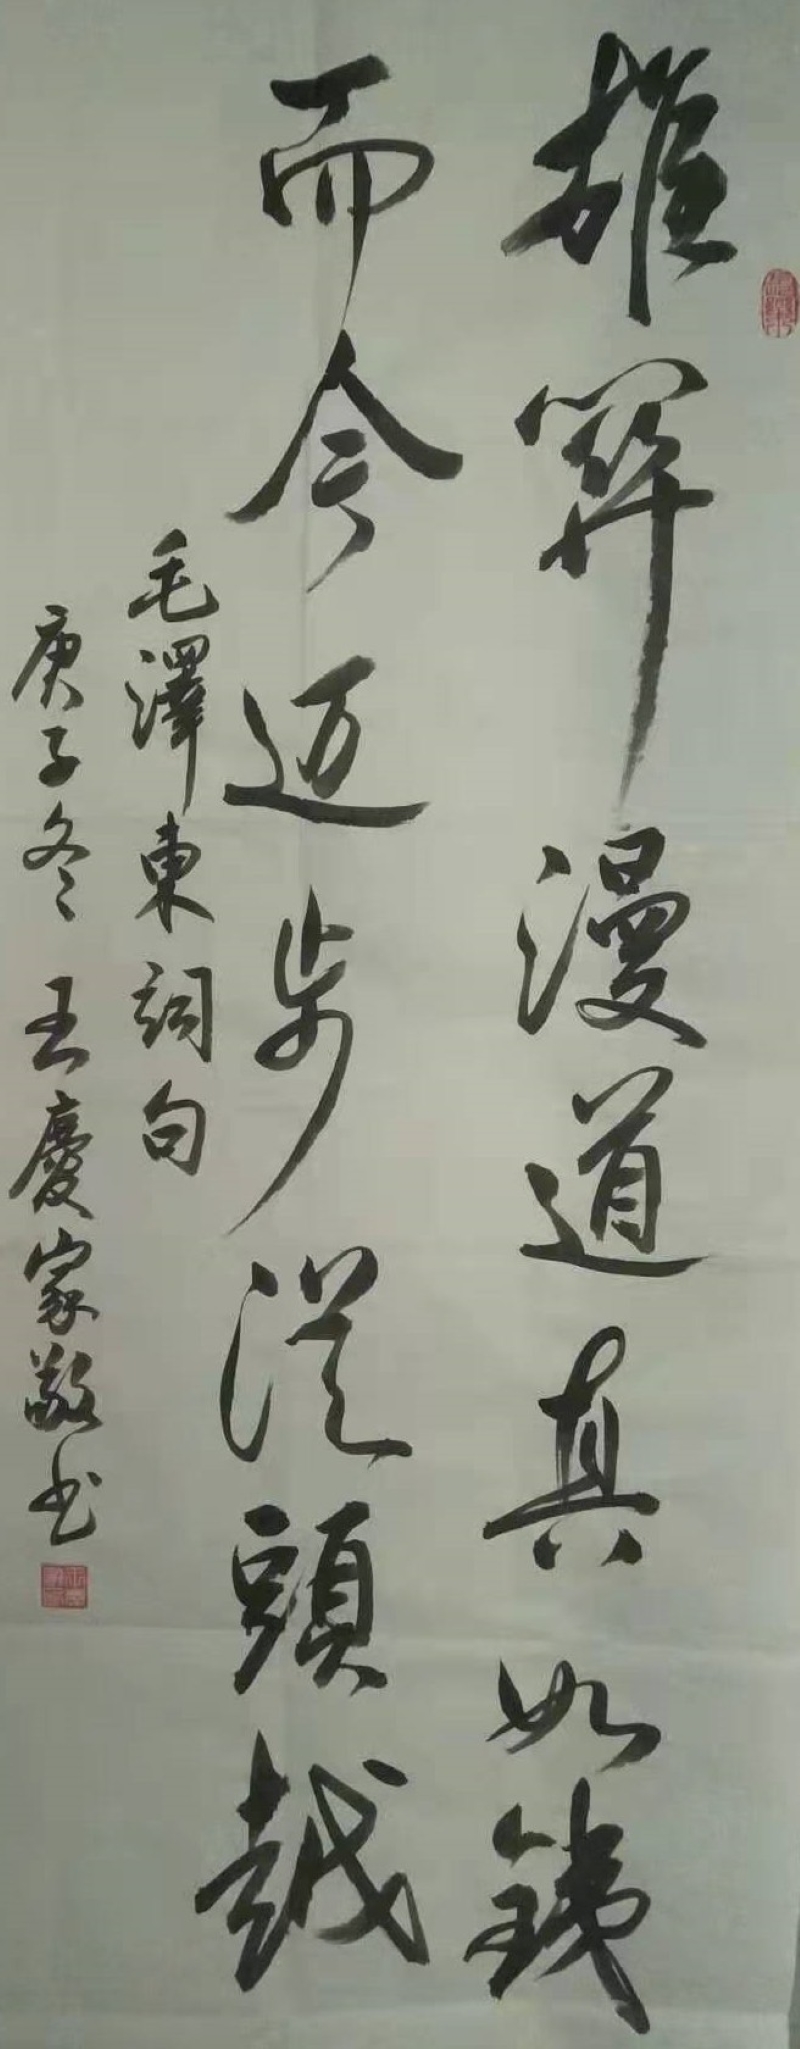 雄関漫道真如鐵
而今迈步從頭越
毛澤東詞句
庚子冬 王慶家敬书